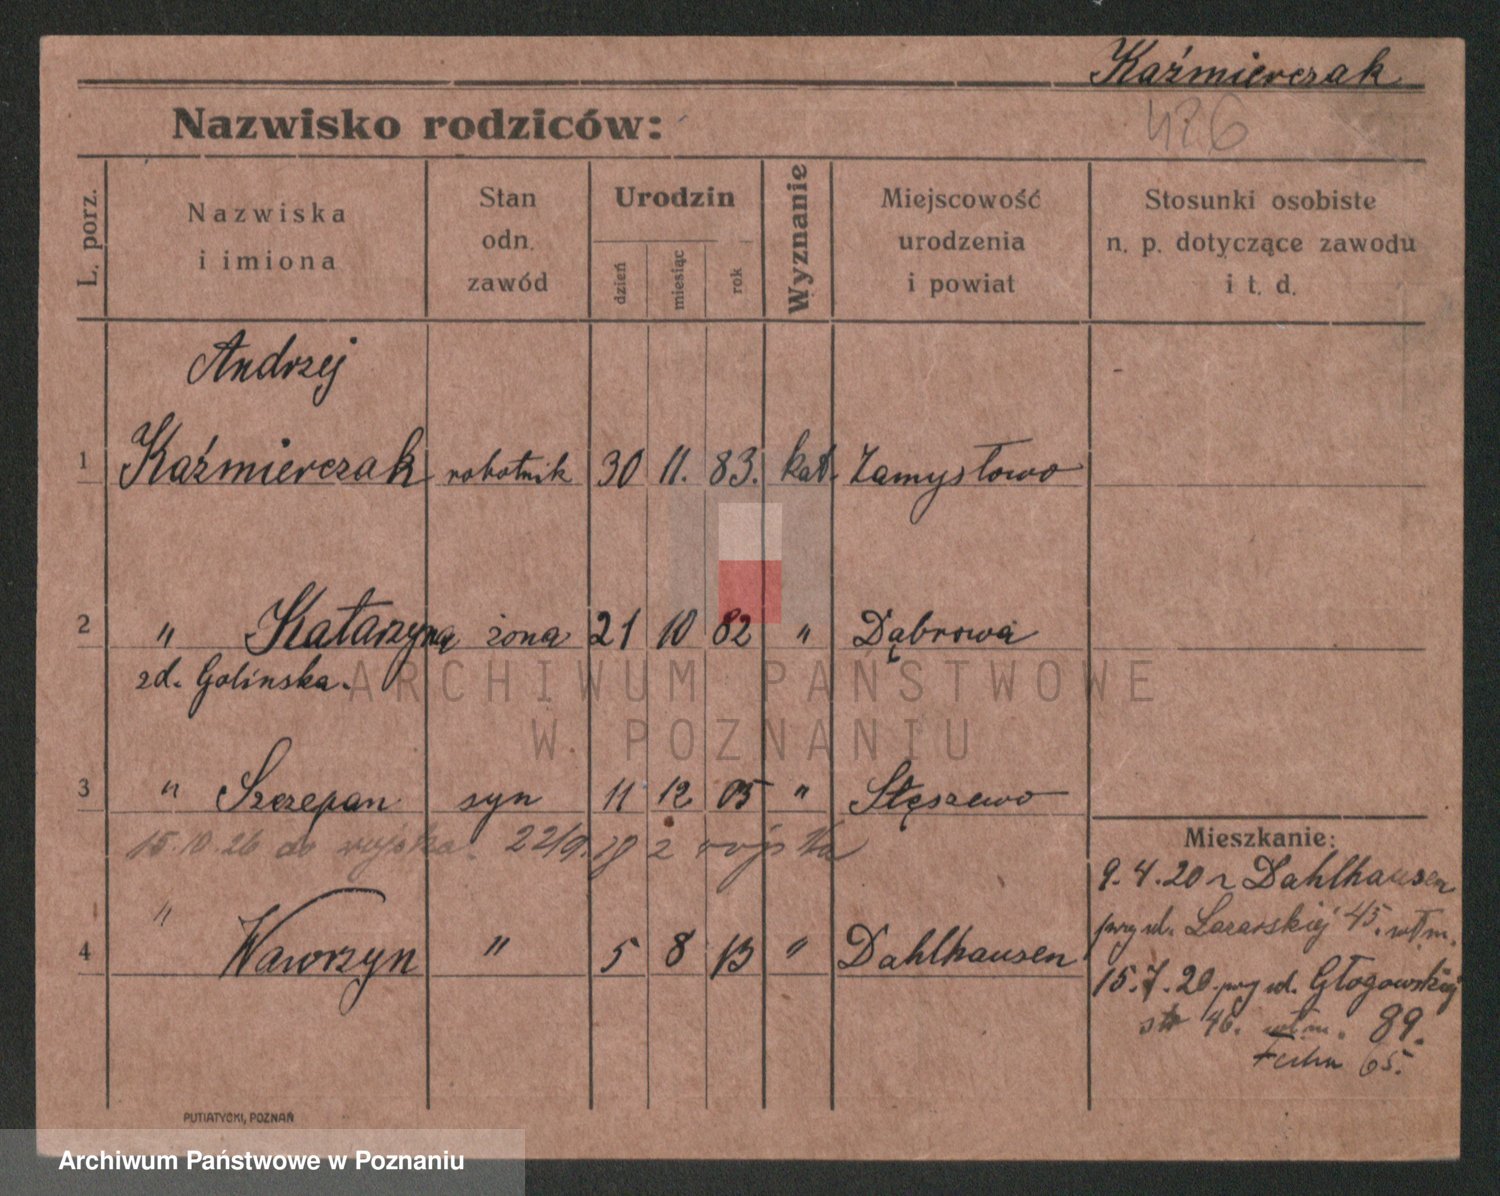 Kaźmierczak
426
Nazwisko rodziców:
L. porz.
Nazwiska
i imiona
Stan
odn.
zawód
Urodzin
dzień
miesiąc
rok
Wyznanie
Miejscowość
urodzenia
i powiat
Stosunki osobiste
n. p. dotyczące zawodu
i t. d.
Andrzej
1 Kaźmierczak robotnik 30 11. 83. kat. Zamysłowo
2 " Katarzyna żona 21 10 82 " Dąbrowa
zd. Golinska.
ARCHIWUM PAŃSTWOWE
W POZNANIU
3 " Szczepan syn 11 12 05 " Stęszewo
15.10.26 do wojska. 22/9. z wojska
Mieszkanie:
9.4.20 z Dahlhausen
przy ul. Łazarskiej 45.
4 " Wawrzyn " 5 8 13 " Dahlhausen
15.7.20 przy ul. Głogowskiej
str 46. 89.
65.
PUTIATYCKI, POZNAŃ
Archiwum Państwowe w Poznaniu